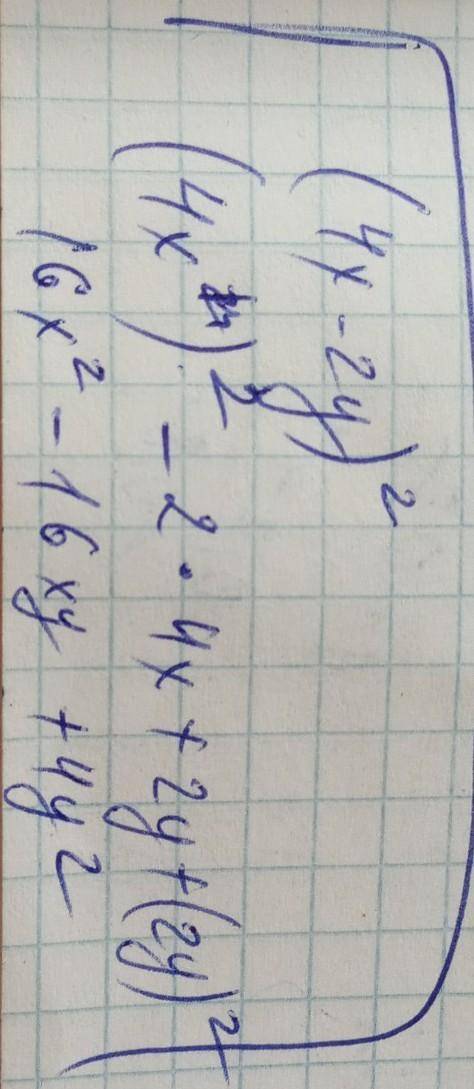 (4x - 2y)²
(4x)² - 2 · 4x + 2y + (2y)²
16x² - 16xy + 4y²